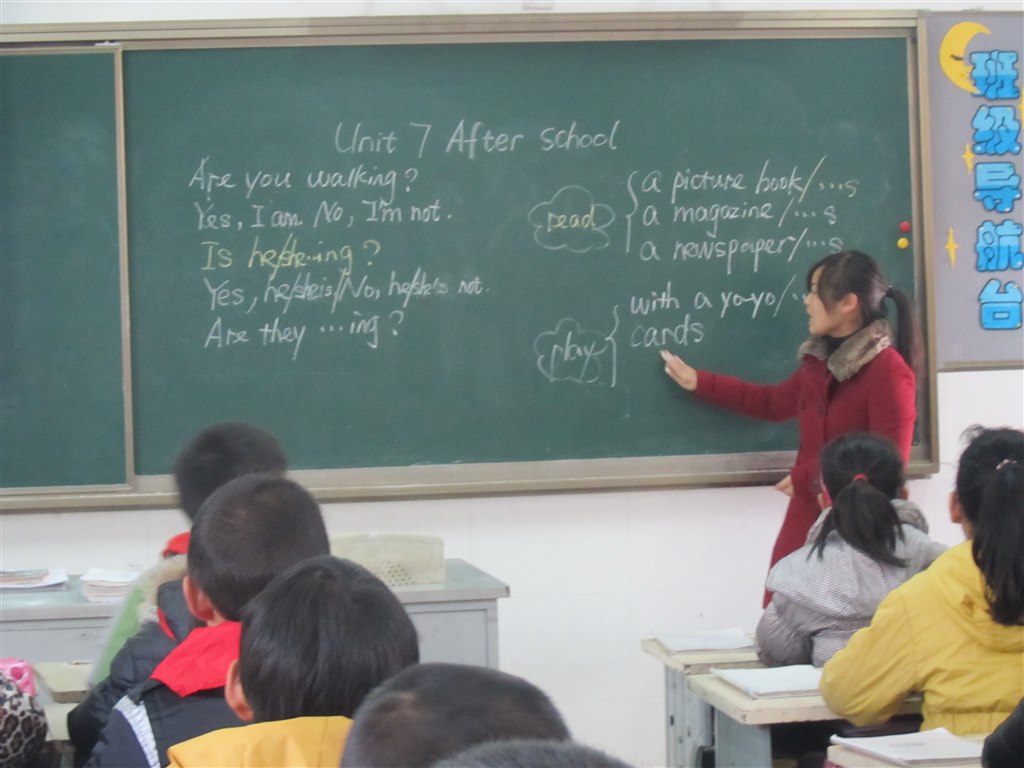 Unit 7 After school
Are you walking?
Yes, I am. No, I'm not.
Is he/she...ing?
Yes, he/she is/No, he/she's not.
Are they ...ing?
read
a picture book/...s
a magazine/...s
a newspaper/...s
play
with a yo-yo/
cards
班级导航台